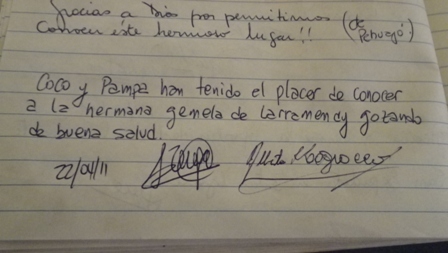 Gracias a Dios por permitirnos (de
Conocer éste hermoso lugar!!
Coco y Pampa han tenido el placer de conocer
a la hermana gemela de Larramendy gozando
de buena salud.
22/04/11